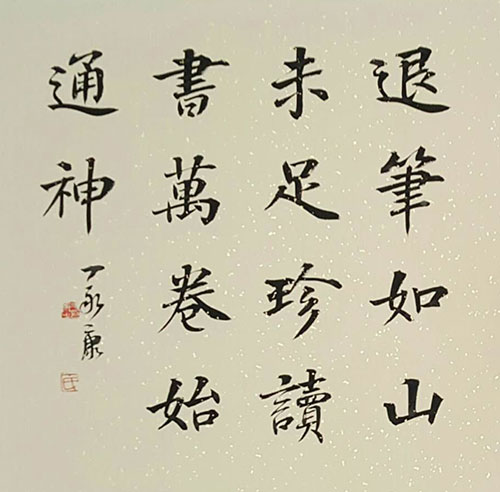 退筆如山
未足珍讀
書萬卷始
通神
丁永康